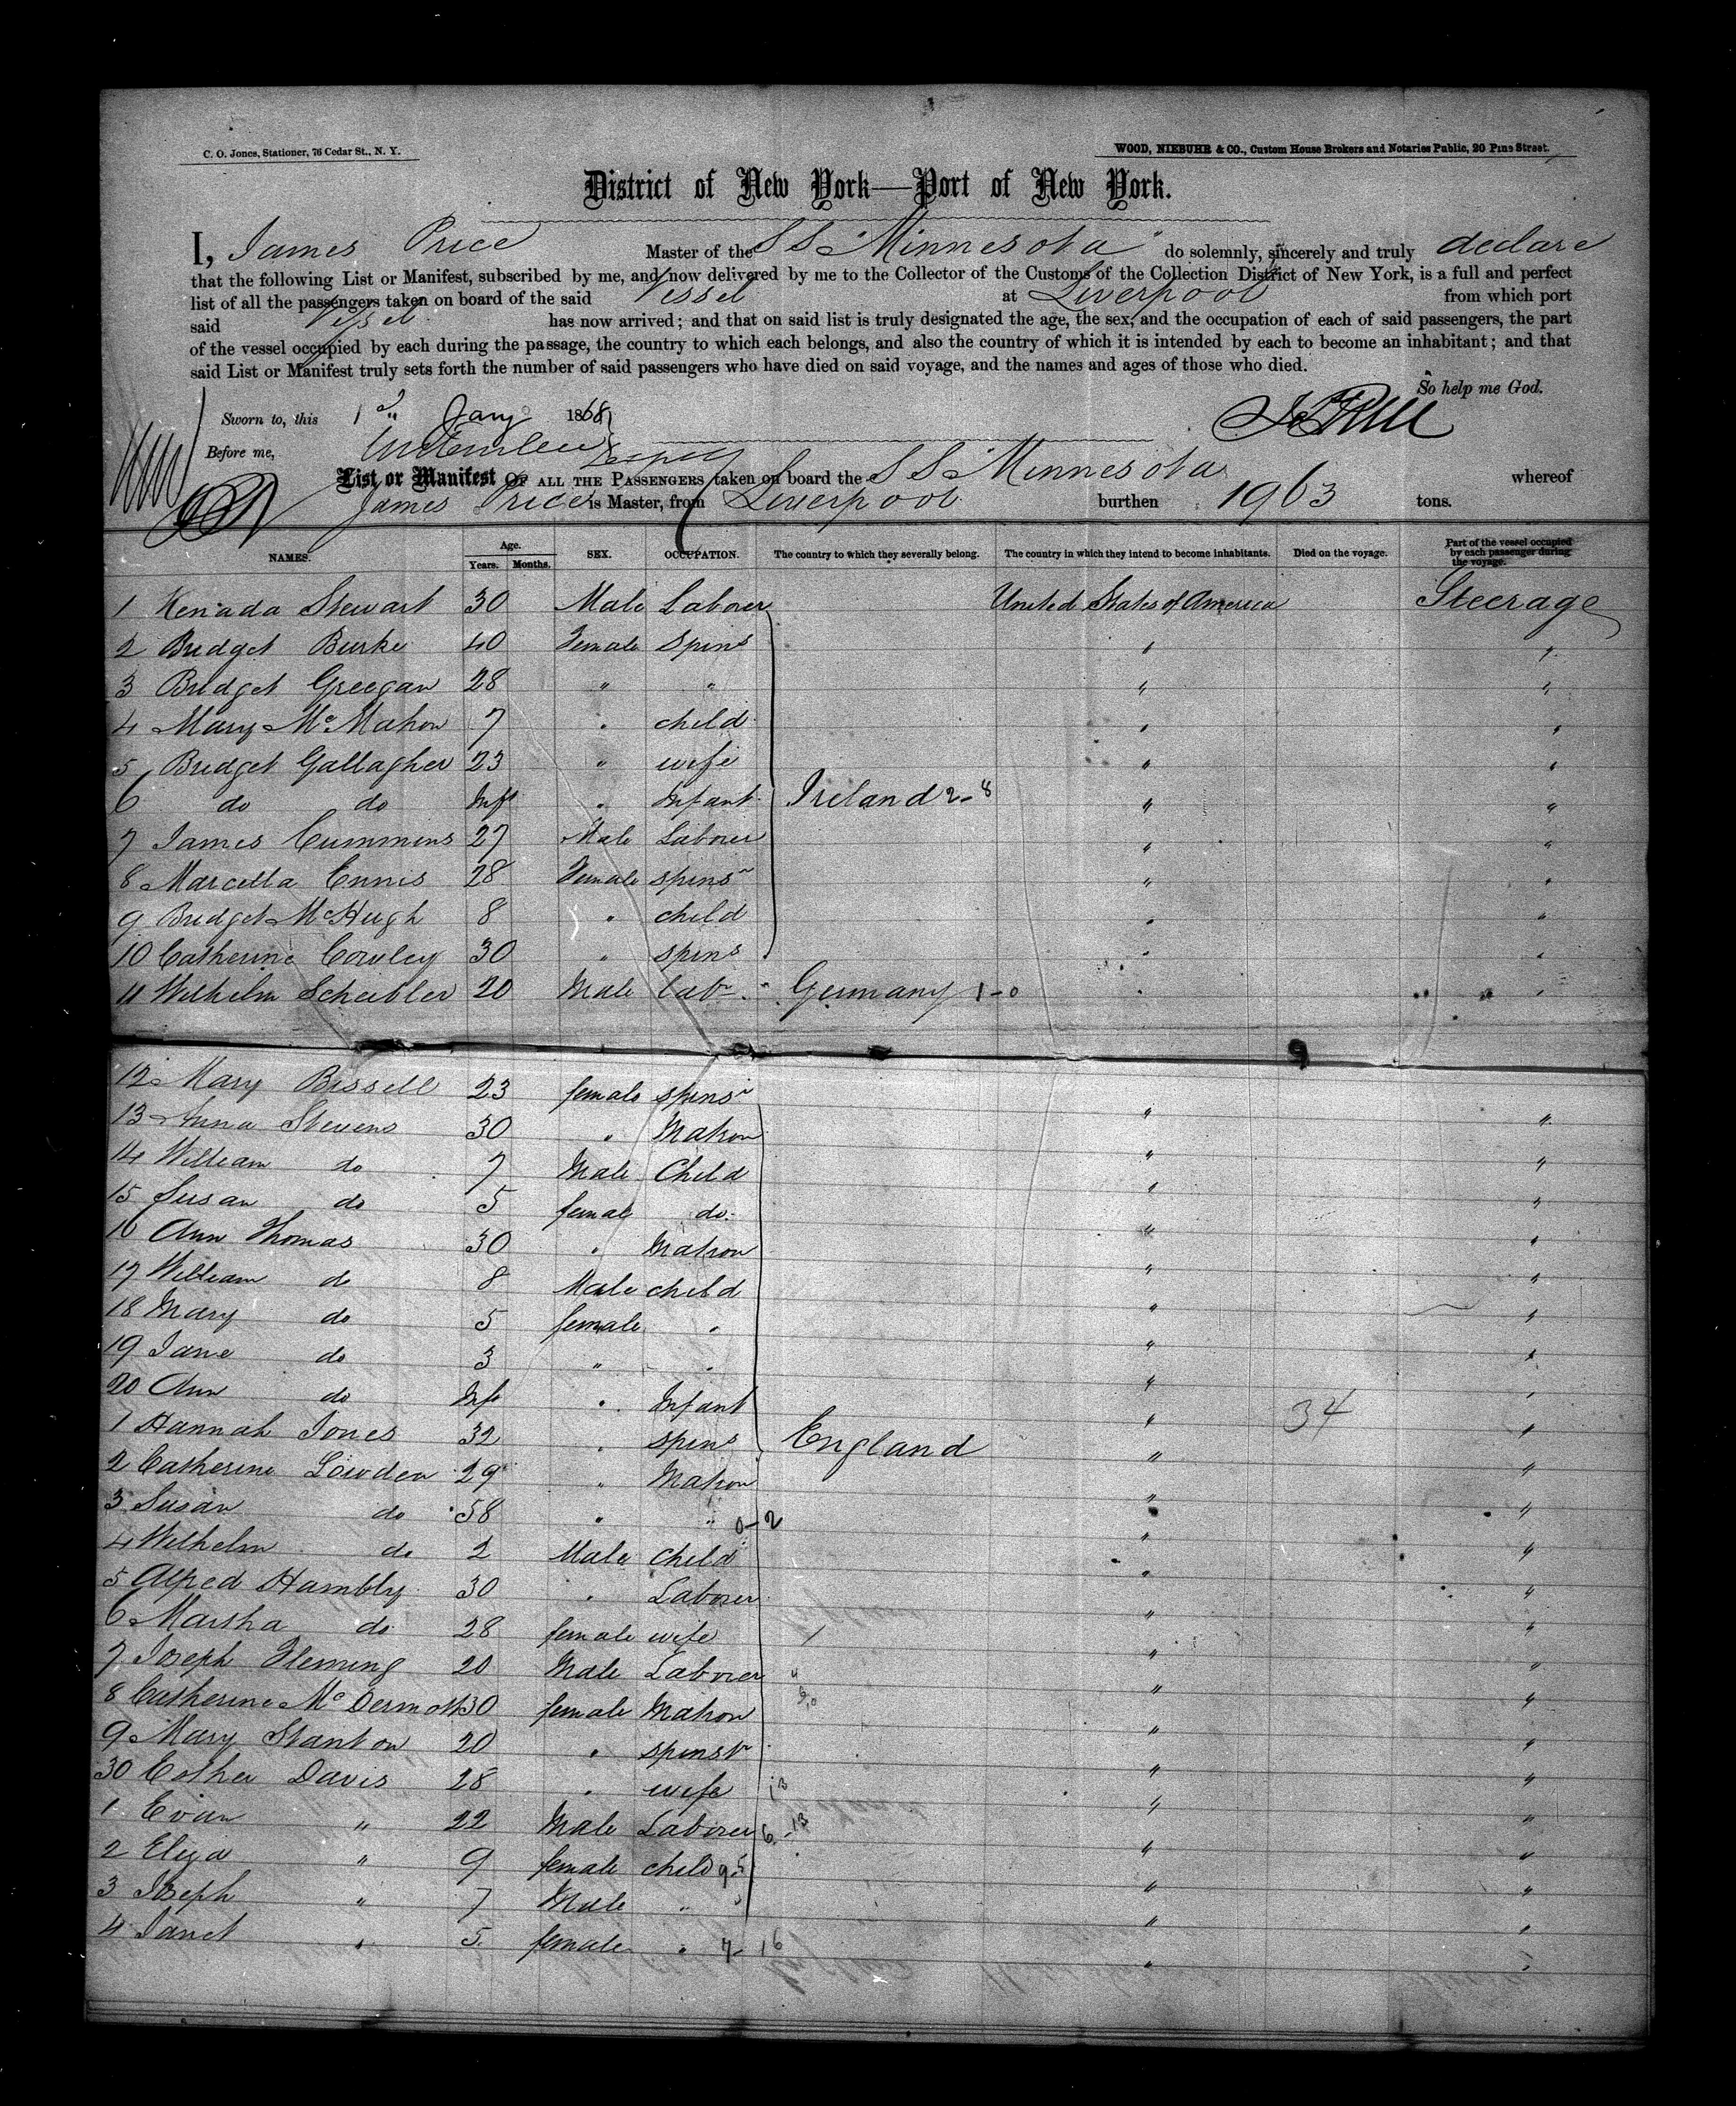 C. O. Jones, Stationer, 76 Cedar St., N. Y.
WOOD, NIEBUHR & CO., Custom House Brokers and Notaries Public, 20 Pine Street.
District of New York—Port of New York.
I, James Price Master of the SS "Minnesota" do solemnly, sincerely and truly declare
that the following List or Manifest, subscribed by me, and now delivered by me to the Collector of the Customs of the Collection District of New York, is a full and perfect
list of all the passengers taken on board of the said Vessel at Liverpool from which port
said Vessel has now arrived; and that on said list is truly designated the age, the sex, and the occupation of each of said passengers, the part
of the vessel occupied by each during the passage, the country to which each belongs, and also the country of which it is intended by each to become an inhabitant; and that
said List or Manifest truly sets forth the number of said passengers who have died on said voyage, and the names and ages of those who died.
So help me God.
Sworn to, this 1st Jany 1868
Before me,
List or Manifest OF ALL THE PASSENGERS taken on board the SS Minnesota whereof
James Price is Master, from Liverpool burthen 1963 tons.
NAMES. Age. Years. Months. SEX. OCCUPATION. The country to which they severally belong. The country in which they intend to become inhabitants. Died on the voyage. Part of the vessel occupied by each passenger during the voyage.
1 Kenada Stewart 30 Male Laborer United States of America Steerage
2 Bridget Burke 40 Female Spins " "
3 Bridget Greegan 28 " " " "
4 Mary McMahon 7 " child " "
5 Bridget Gallagher 23 " wife " "
6 do do Inft " Infant Ireland 2-8 " "
7 James Cummins 27 Male Laborer " "
8 Marcella Ennis 28 Female spinsr " "
9 Bridget McHugh 8 " child " "
10 Catherine Cowley 30 " spins " "
11 Wilhelm Scheibler 20 Male Labr Germany 1-0 " "
9
12 Mary Bissell 23 female spinsr " "
13 Anna Stevens 30 " Matron " "
14 William do 7 Male Child " "
15 Susan do 5 female do " "
16 Ann Thomas 30 " Matron " "
17 William do 8 Male child " "
18 Mary do 5 female " " "
19 Jane do 3 " " " "
20 Ann do Inft " Infant " 34 "
1 Hannah Jones 32 " spins England " "
2 Catherine Lowden 29 " Matron " "
3 Susan do 58 " " 0-2 " "
4 Wilhelm do 2 Male child " "
5 Alfred Hambly 30 " Laborer " "
6 Marsha do 28 female wife " "
7 Joseph Fleming 20 Male Laborer " "
8 Catherine McDermott 30 female Matron " "
9 Mary Stanton 20 " spinstr " "
30 Esther Davis 28 " wife " "
1 Evan " 22 Male Laborer 6-13 " "
2 Eliza " 9 female child 9-5 " "
3 Joseph " 7 Male " " "
4 Janet " 5 female " 7-16 " "